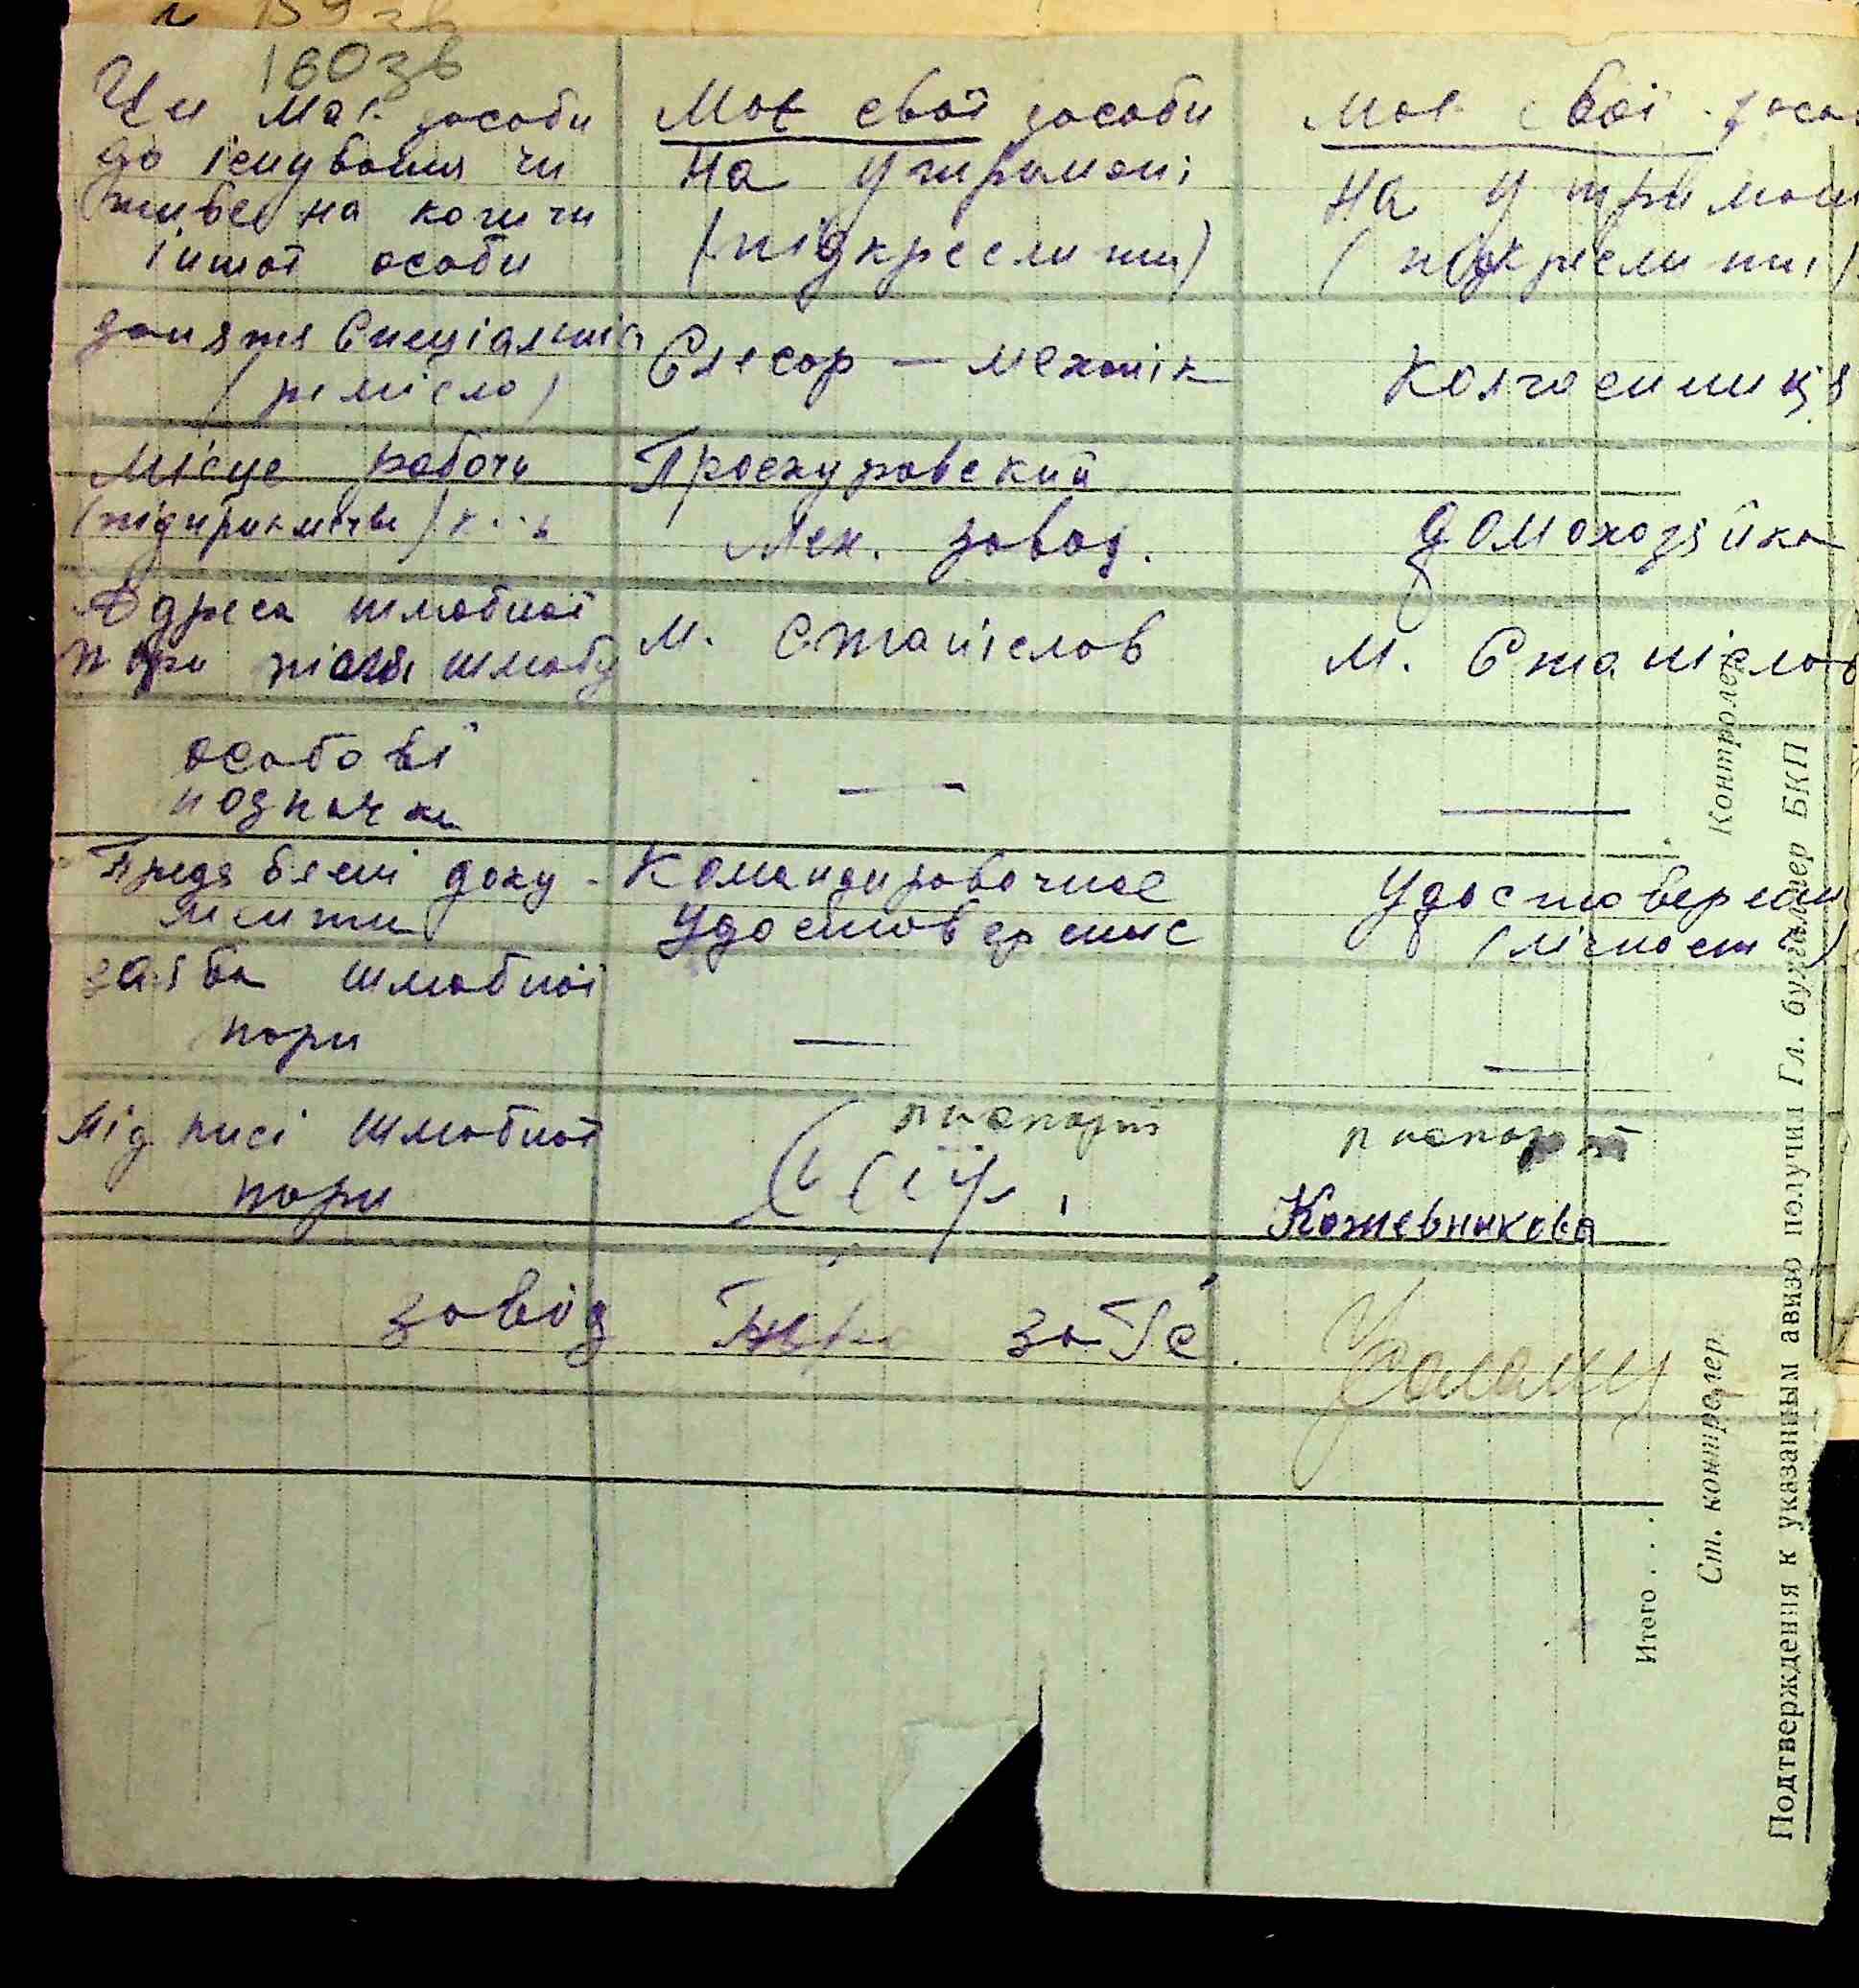 159 зв
160 зв
Чи має засоби
до існування чи
живе на кошти
іншої особи
Має свої засоби
на утримані
(підкреслити)
має свої засо
на утриман
(підкреслити)
заняття Спеціальніс
(ремісло)
Слесар — механік
Колгоспниця
Місце работи
(підприємство)
Проскуровский
Мех. завод.
домохозяйка
Адреса шлюбної
пари після шлюбу
м. Станіслав
м. Станіслав
особові
позначки
—
—
Предявлені доку-
менти
Командировочное
Удостоверение
Удостоверени
(лічності)
заява шлюбної
пари
—
—
Підписі шлюбної
пари
паспорт
паспорт
Кожевникова
завід заГС.
Контролер
Ст. контролер
Итого . . . .
Подтверждения к указанным авизо получил Гл. бухгалтер БКП